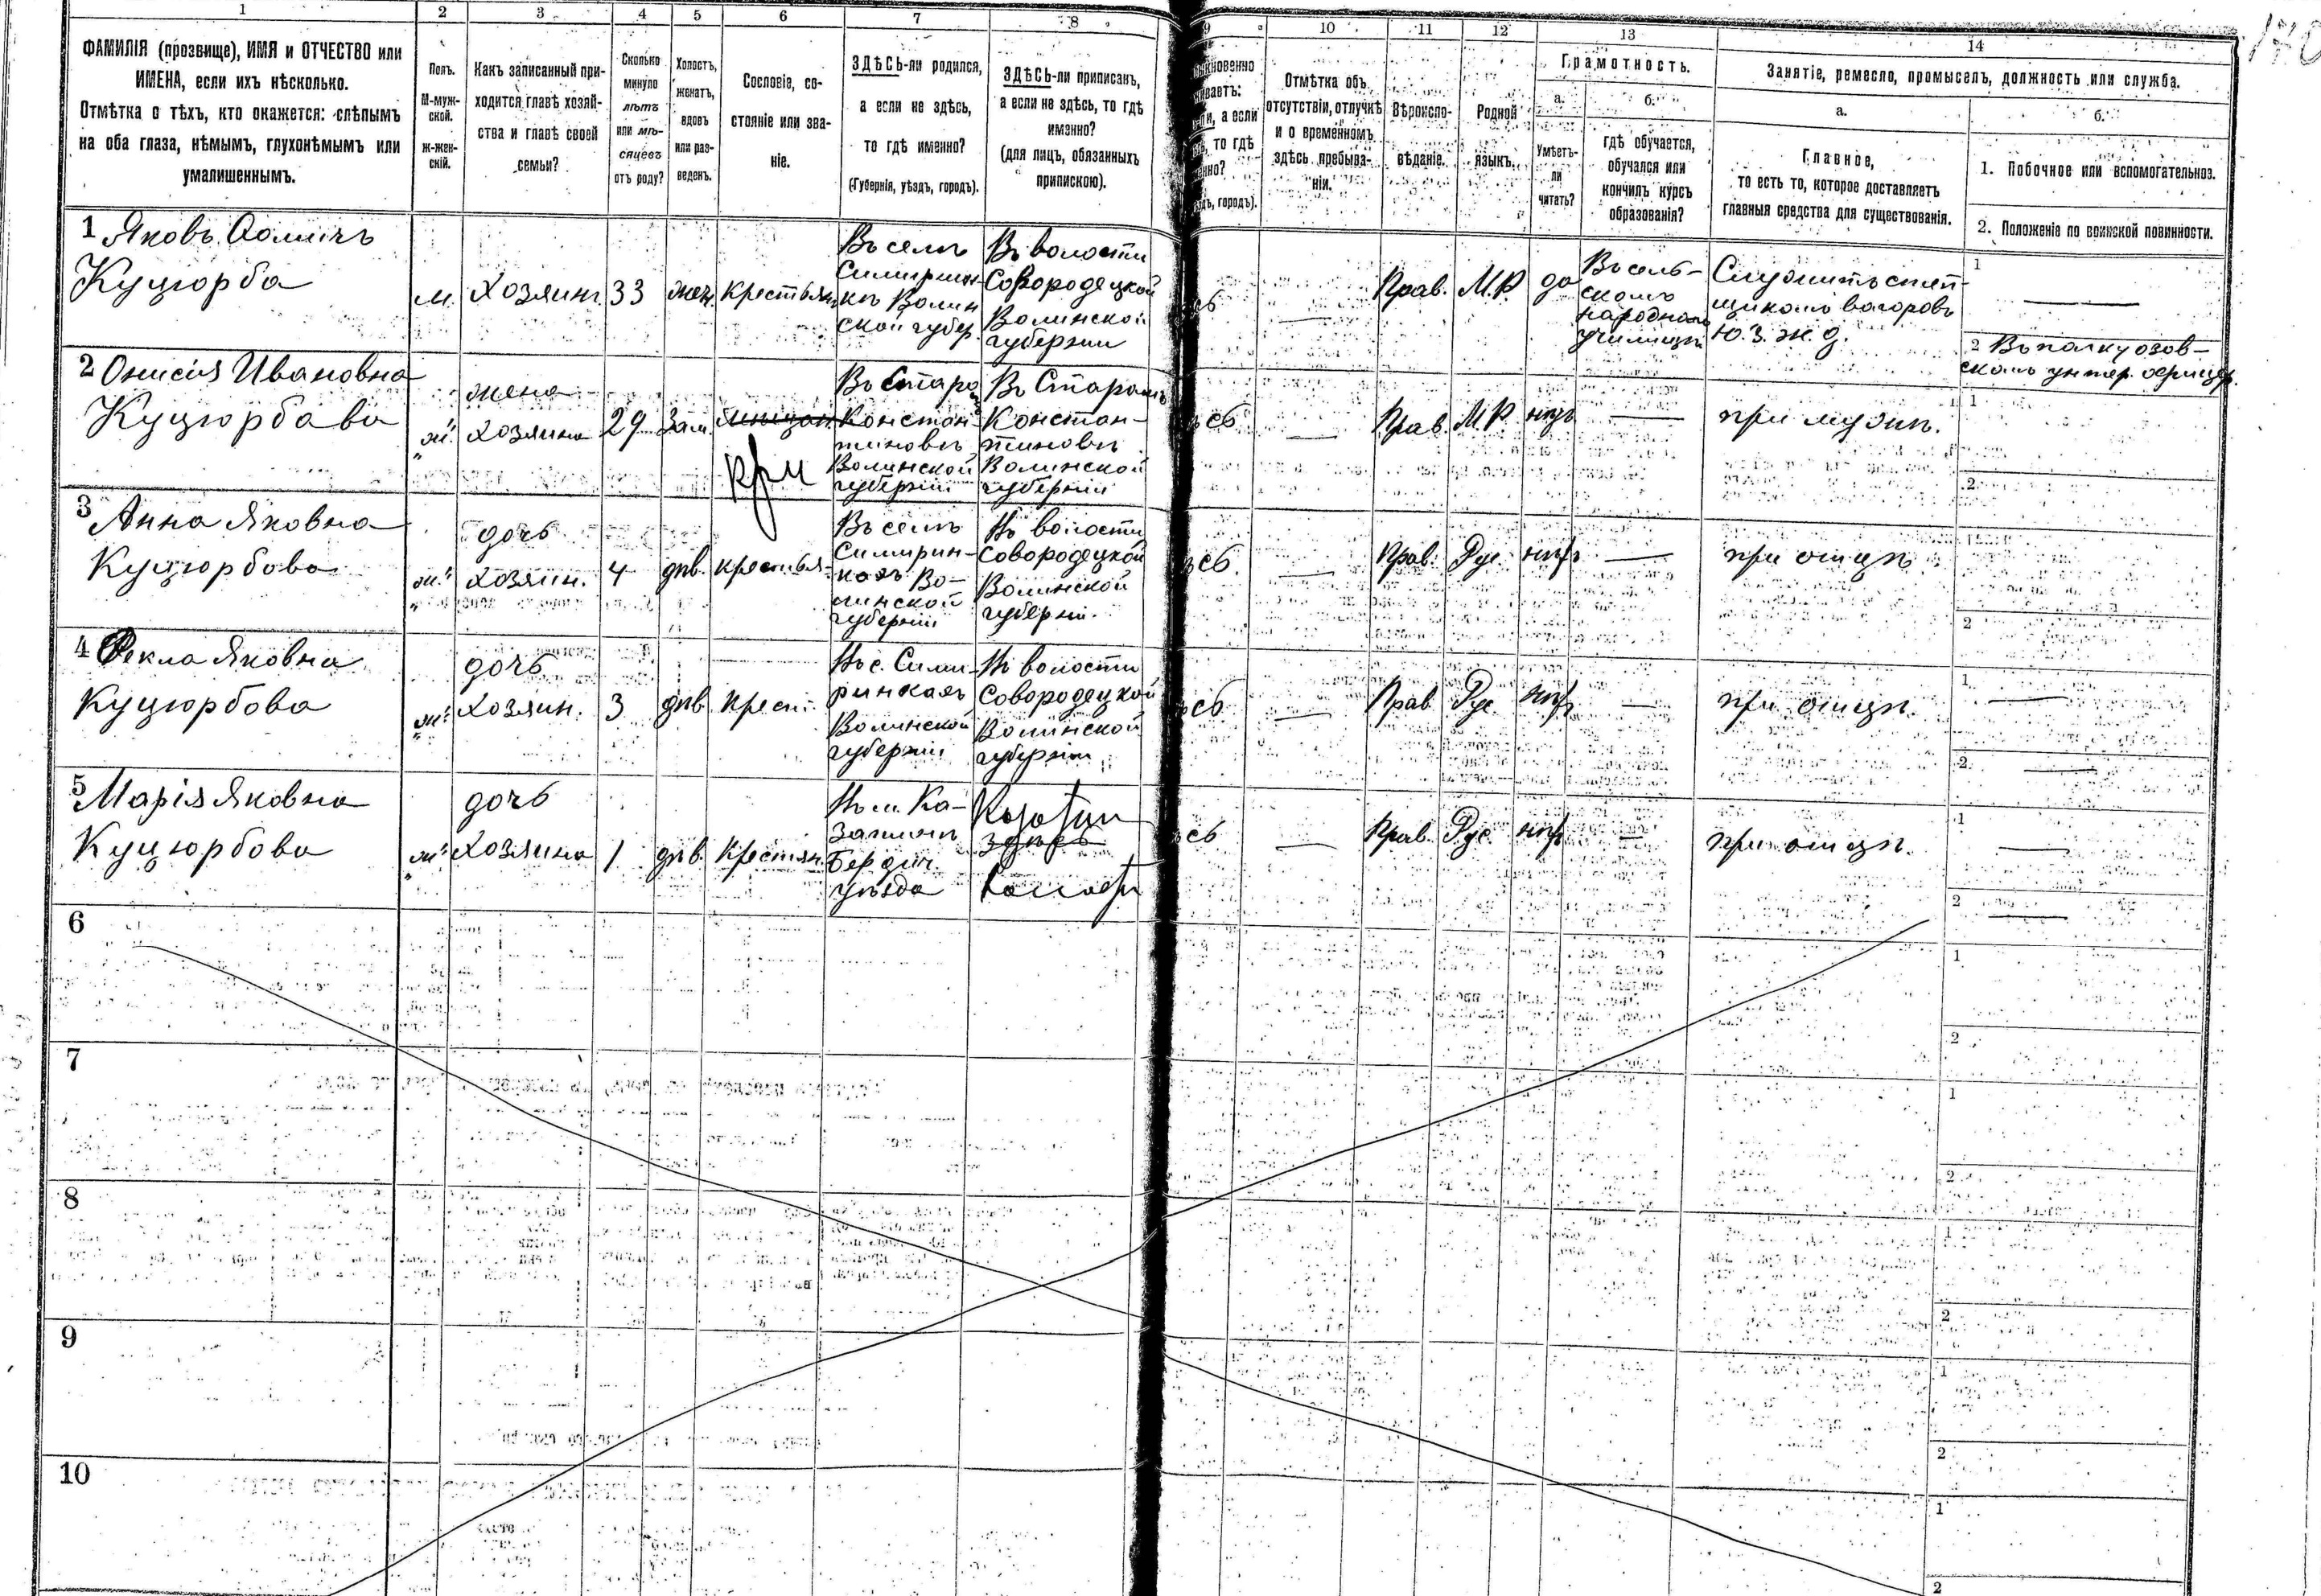 170
1 2 3 4 5 6 7 8 9 10 11 12 13 14
ФАМИЛІЯ (прозвище), ИМЯ и ОТЧЕСТВО или
ИМЕНА, если ихъ нѣсколько.
Отмѣтка о тѣхъ, кто окажется: слѣпымъ
на оба глаза, нѣмымъ, глухонѣмымъ или
умалишеннымъ.
Полъ.
М-муж-
ской.
ж-жен-
скій.
Какъ записанный при-
ходится главѣ хозяй-
ства и главѣ своей
семьи?
Сколько
минуло
лѣтъ
или мѣ-
сяцевъ
отъ роду?
Холостъ,
женатъ,
вдовъ
или раз-
веденъ.
Сословіе, со-
стояніе или зва-
ніе.
ЗДѢСЬ-ли родился,
а если не здѣсь,
то гдѣ именно?
(Губернія, уѣздъ, городъ).
ЗДѢСЬ-ли приписанъ,
а если не здѣсь, то гдѣ
именно?
(для лицъ, обязанныхъ
припискою).
а если
то гдѣ
городъ).
Отмѣтка объ
отсутствіи, отлучкѣ
и о временномъ
здѣсь пребыва-
ніи.
Вѣроиспо-
вѣданіе.
Родной
языкъ.
Грамотность.
а.
Умѣетъ-
ли
читать?
б.
гдѣ обучается,
обучался или
кончилъ курсъ
образованія?
Занятіе, ремесло, промыселъ, должность или служба.
а.
Главное,
то есть то, которое доставляетъ
главныя средства для существованія.
б.
1. Побочное или вспомогательное.
2. Положеніе по воинской повинности.
1 Яковъ Фомичъ
Куцюрба
м.
Хозяинъ
33
жен.
крестьян
Въ селѣ
Волин
ской губер.
Въ волости
Совородецкой
Волинской
губернии
Прав.
М.Р.
да
Въ сель-
скомъ
народномъ
училищѣ
Служитъ
вагоровъ
Ю. З. ж. д.
1
2
2 Онисія Ивановна
Куцюрбава
ж.
жена
хозяина
29
Зам.
Въ Старо
Констан-
тиновѣ
Волинской
губерніи
Въ Старомъ
Констан-
тиновѣ
Волинской
губерніи
Прав.
М.Р.
нѣтъ
при мужѣ.
1
2
3 Анна Яковна
Куцюрбова
ж.
дочь
хозяин.
4
дѣв.
крестья-
Въ селѣ
Симирин-
кахъ Во-
линской
губерніи
Въ волости
Совородецкой
Волинской
губерніи.
Прав.
Рус.
нѣт
при отцѣ
2
4 Фекла Яковна
Куцюрбова
ж.
дочь
Хозяин.
3
дѣв.
крест.
Въ с. Сими
ринкахъ
Волинской
губерніи
Въ волости
Совородецкой
Волинской
губерніи
Прав
Рус
нѣт
при отцѣ.
1
2
5 Марія Яковна
Куцюрбова
ж.
дочь
Хозяина
1
дѣв.
Крестян.
Въ м. Ка-
затинѣ
Бердич.
уѣзда
здѣсь
Прав.
Рус.
нѣт
при отцѣ.
1
2
6
1
2
7
1
2
8
1
2
9
1
2
10
1
2